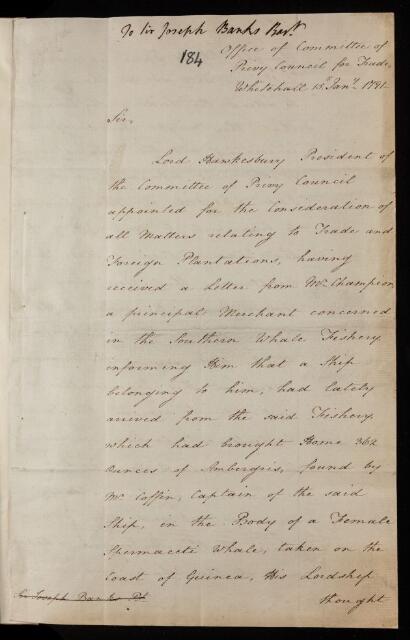 To Sir Joseph Banks Bart.
184
Office of Committee of
Privy Council for Trade,
Whitehall 15th Jany. 1791
Sir,
Lord Hawkesbury President of
the Committee of Privy Council
appointed for the Consideration of
all Matters relating to Trade and
Foreign Plantations, having
received a Letter from Mr. Champion
a principal Merchant concerned
in the Southern Whale Fishery
informing Him that a Ship
belonging to him, had lately
arrived from the said Fishery,
which had brought Home 362
Ounces of Ambergris, found by
Mr. Coffin, Captain of the said
Ship, in the Body of a Female
Spermaceti Whale, taken on the
Coast of Guinea, His Lordship
Sir Joseph Banks Bt.
thought